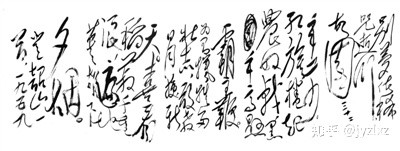 别梦依稀
咒逝川
故园三十
二年前
红旗捲起
农奴戟黑
手高悬
霸主鞭
为有牺牲多
壮志敢教
日月换新
天喜看
稻菽千重
浪遍地
英雄下
夕烟
一九五九
知乎 @jyzlxz